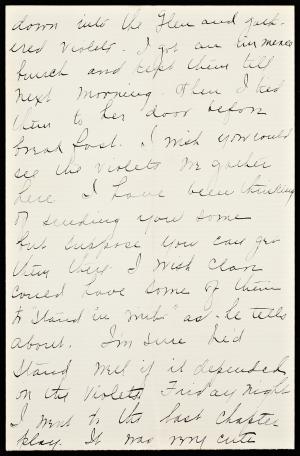 down into the Glen and gath-
ered violets. I got an immense
bunch and kept them till
next morning. Then I tied
them to her door before
breakfast. I wish you could
see the violets we gather
here. I have been thinking
of sending you some
but suppose you can get
them there. I wish Clare
could have some of them
to "stand in with" as he tells
about. I'm sure he'd
stand well if it depended
on the violets. Friday night
I went to the last Chapter
play. It was very cute